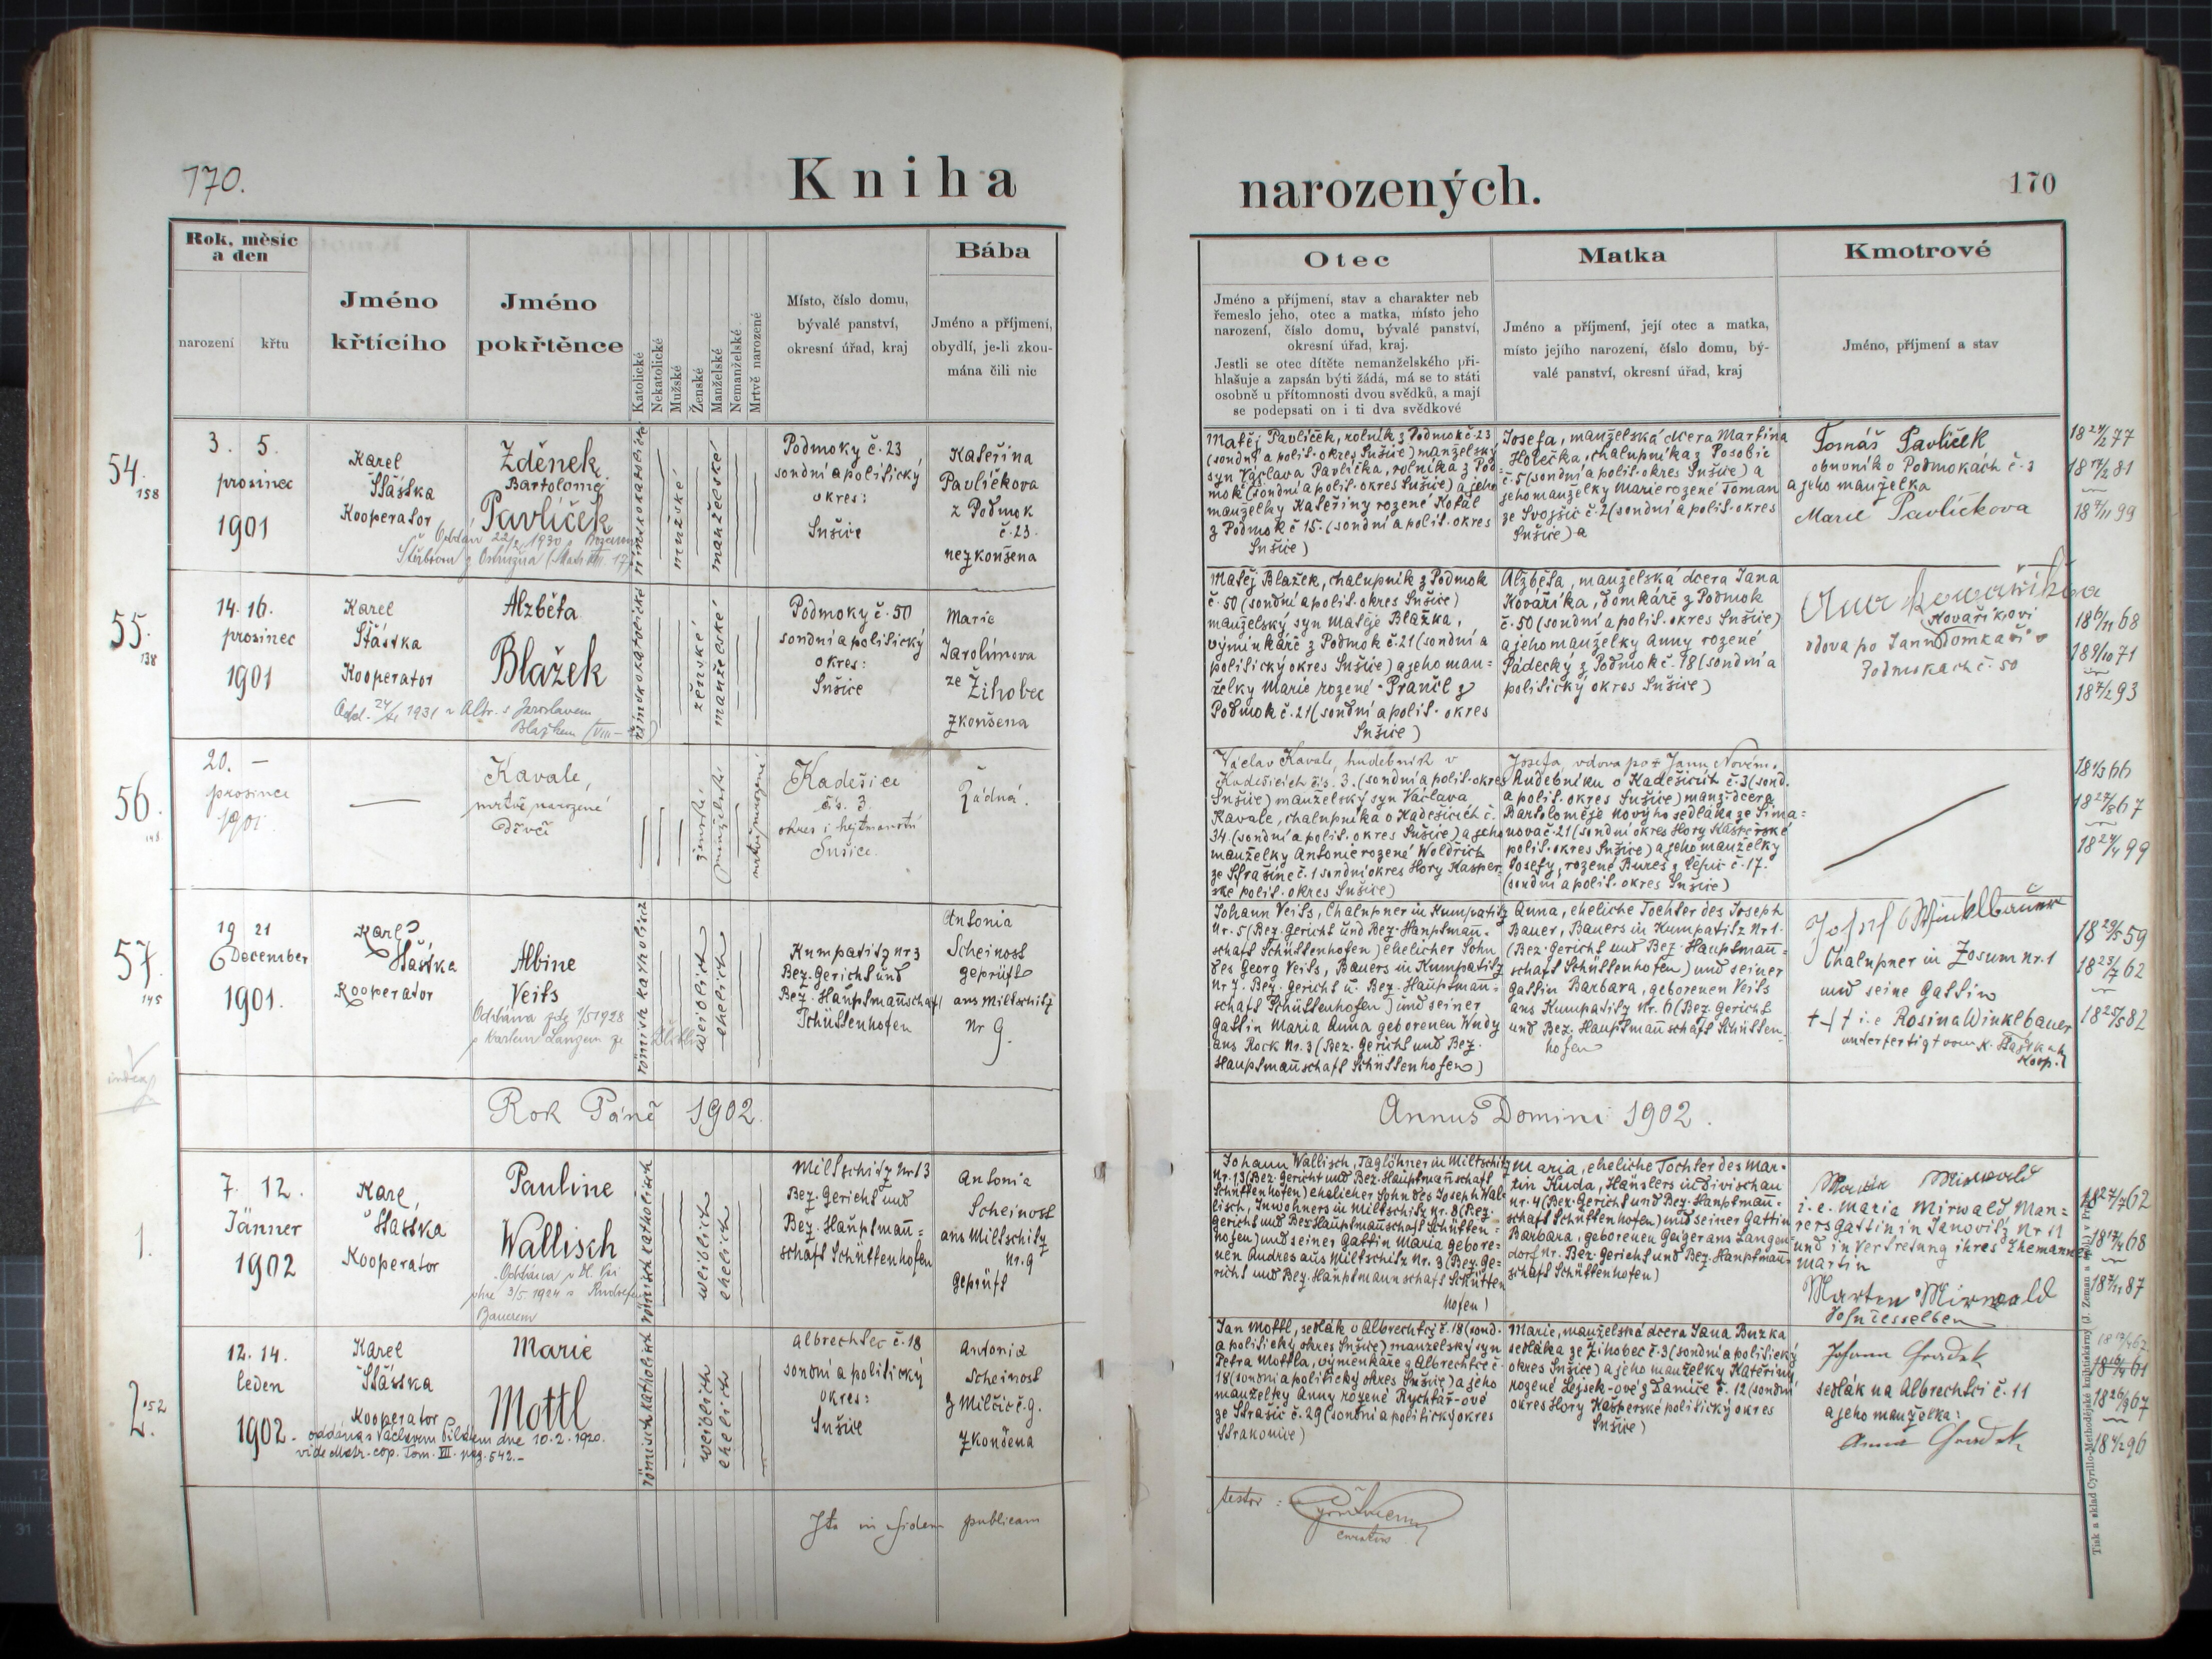 170.
Kniha narozených.
170
Rok, měsíc a den
narození
křtu
Jméno křtícího
Jméno pokřtěnce
Katolické
Nekatolické
Mužské
Ženské
Manželské
Nemanželské
Mrtvě narozené
Místo, číslo domu,
bývalé panství,
okresní úřad, kraj
Bába
Jméno a příjmení,
obydlí, je-li zkou-
mána čili nic
Otec
Jméno a příjmení, stav a charakter neb
řemeslo jeho, otec a matka, místo jeho
narození, číslo domu, bývalé panství,
okresní úřad, kraj.
Jestli se otec dítěte nemanželského při-
hlašuje a zapsán býti žádá, má se to státi
osobně u přítomnosti dvou svědků, a mají
se podepsati on i ti dva svědkové
Matka
Jméno a příjmení, její otec a matka,
místo jejího narození, číslo domu, bý-
valé panství, okresní úřad, kraj
Kmotrové
Jméno, příjmení a stav
54.
158
3. 5.
prosinec
1901
Karel
Šťástka
Kooperator
Zdeněk
Bartoloměj
Pavlíček
římskokatolické
mužské
manželské
Podmoky č. 23
soudní a politický
okres:
Sušice
Kateřina
Pavlíčkova
z Podmok
č. 23.
nezkoušena
Matěj Pavlíček, rolník z Podmok č. 23
(soudní a polit. okres Sušice) manželský
syn Václava Pavlíčka, rolníka z Pod-
mok (soudní a polit. okres Sušice) a jeho
manželky Kateřiny rozené Kotál
z Podmok č 15. (soudní a polit. okres
Sušice)
Josefa, manželská dcera Martina
Holečka, chalupníka z Posobic
č. 5 (soudní a polit. okres Sušice) a
jeho manželky Marie rozené Toman
ze Svojšic č. 2 (soudní a polit. okres
Sušice) a
Tomáš Pavlíček
obuvník v Podmokách č. 3
a jeho manželka
Marie Pavlíčkova
55.
138
14. 16.
prosinec
1901
Karel
Šťástka
Kooperator
Alžběta
Blažek
římskokatolické
ženské
manželské
Podmoky č. 50
soudní a politický
okres:
Sušice
Marie
Jarolímova
ze Žihobec
zkoušena
Matěj Blažek, chalupník z Podmok
č. 50 (soudní a polit. okres Sušice)
manželský syn Matěje Blažka,
výminkáře z Podmok č. 21 (soudní a
politický okres Sušice) a jeho man-
želky Marie rozené Prančl z
Podmok č. 21 (soudní a polit. okres
Sušice)
Alžběta, manželská dcera Jana
Kováříka, domkáře z Podmok
č. 50 (soudní a polit. okres Sušice)
a jeho manželky Anny rozené
Pádecky z Podmok č. 18 (soudní a
politický okres Sušice)
vdova po Janu Kováříkovi
Domkaři v
Podmokach č. 50
56.
20. —
prosince
1901
Kavale,
mrtvě narozené
děvče
ženské
manželské
mrtvě narozené
Kadešice
č.s. 3.
okres i hejtmanství
Sušice.
Žádná.
Václav Kavale, hudebník v
Kadešicích č.s. 3. (soudní a polit. okres
Sušice) manželský syn Václava
Kavale, chalupníka v Kadešicích č.
34. (soudní a polit. okres Sušice) a jeho
manželky Antonie rozené Woldřich
ze Strašině č. 1 soudní okres Hory Kašper-
ské polit. okres Sušice)
Josefa, vdova po Janu Novém,
hudebníku v Kadešicích č. 3 (soud.
a polit. okres Sušice) manž. dcera
Bartoloměje Nového sedláka ze Šima-
nova č. 21 (soudní okres Hory Kašperské
polit. okres Sušice) a jeho manželky
Josefy, rozené Bureš z č. 17.
(soudní a polit. okres Sušice)
57.
145
19 21
December
1901.
Karl
Šťástka
Kooperator
Albine
Veits
römisch katholisch
weiblich
ehelich
Kumpatitz nr 3
Bez. Gericht und
Bez. Hauptmannschaft
Schüttenhofen
Antonia
Scheinost
geprüft
aus Miltschitz
Nr 9.
Johann Veits, Chalupner in Kumpatitz
Nr. 5 (Bez. Gericht und Bez. Hauptmann-
schaft Schüttenhofen) ehelicher Sohn
des Georg Veits, Bauers in Kumpatitz
nr 7. Bez. Gericht u. Bez. Hauptmann-
schaft Schüttenhofen) und seiner
Gattin Maria Anna geborenen Wudy
aus Rock Nr. 3 (Bez. Gericht und Bez.
Hauptmannschaft Schüttenhofen)
Anna, eheliche Tochter des Joseph
Bauer, Bauers in Kumpatitz Nr 1.
(Bez. Gericht und Bez. Hauptmann-
schaft Schüttenhofen) und seiner
Gattin Barbara, geborenen Veits
aus Kumpatitz Nr. 6 (Bez. Gericht
und Bez. Hauptmannschaft Schütten-
hofen
Josef Winklbauer
Chalupner in Zosum nr. 1
und seine Gattin
+++ i.e Rosina Winklbauer
unterfertigt vom K. Šťástka
Koop.
index
Rok Páně 1902.
Annus Domini 1902.
1.
7. 12.
Jänner
1902
Karl
Šťástka
Kooperator
Pauline
Wallisch
römisch katholisch
weiblich
ehelich
Miltschitz Nr 13
Bez. Gericht und
Bez. Hauptmann-
schaft Schüttenhofen
Antonia
Scheinost
aus Miltschitz
Nr. 9
geprüft
Johann Wallisch, Taglöhner in Miltschitz
Nr. 13 (Bez. Gericht und Bez. Hauptmannschaft
Schüttenhofen) ehelicher Sohn des Joseph Wal-
lisch, Inwohners in Miltschitz Nr. 8 (Bez.
Gericht und Bez Hauptmannschaft Schütten-
hofen) und seiner Gattin Maria gebore-
nen Andres aus Miltschitz Nr. 3 (Bez. Ge-
richt und Bez. Hauptmannschaft Schütten
hofen)
Maria, eheliche Tochter des Mar-
tin Kuda, Häuslers in Divischau
nr. 4 (Bez. Gericht und Bez. Hauptmann-
schaft Schüttenhofen) und seiner Gattin
Barbara, geborenen Geiger aus Langen-
dorf nr. Bez. Gericht und Bez. Hauptmann-
schaft Schüttenhofen)
i.e. Maria Mirwald, Mau-
rersgattin in Janovitz Nr 11
und in Vertretung ihres Ehemannes
Martin
Martin Mirwald
Sohn desselben
2.
152
12. 14.
leden
1902.
Karel
Šťástka
Kooperator
Marie
Mottl
oddána s Václavem Pilátem dne 10.2.1920.
vide Matr. cop. Tom. VII. pag. 542.-
römisch katholisch
weiblich
ehelich
Albrechtec č. 18
soudní a politický
okres:
Sušice
Antonia
Scheinost
z Milčic č. 9.
zkoušena
Jan Mottl, sedlák v Albrechtci č. 18 (soud.
a politický okres Sušice) manželský syn
Petra Mottla, výmenkáře z Albrechtce č.
18 (soudní a politický okres Sušice) a jeho
manželky Anny rozené Rychtář-ové
ze Strašic č. 29 (soudní a politický okres
Strakonice)
Marie, manželská dcera Jana Buzka
sedláka ze Žihobec č. 3 (soudní a politický
okres Sušice) a jeho manželky Kateřiny,
rozené Lejsek-ové z Damíče č. 12 (soudní
okres Hory Kašperské politický okres
Sušice)
sedlák na Albrechtci č. 11
a jeho manželka:
Ita in fidem publicam
testor:
Tisk a sklad Cyrillo-Methodějské knihtiskárny (J. Zeman a